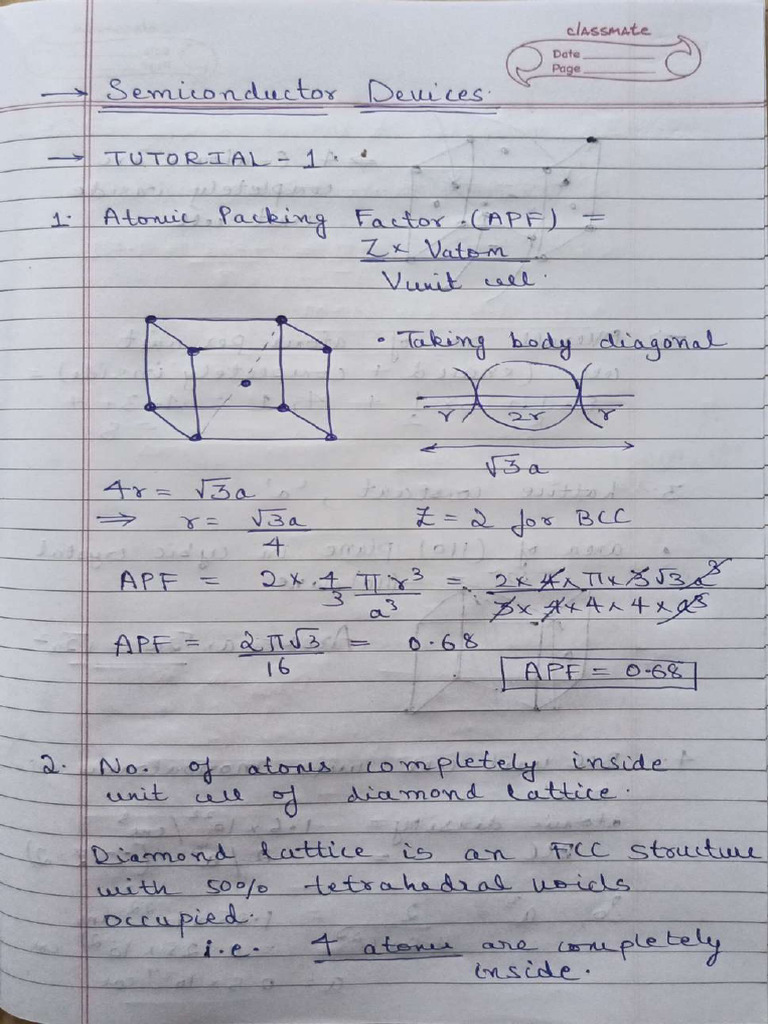 classmate
Date
Page
→ Semiconductor Devices.
→ TUTORIAL - 1.
1. Atomic Packing Factor (APF) =
Z × Vatom
Vunit cell.
• Taking body diagonal
r 2r r
√3a
4r = √3a
⇒ r = √3a/4 Z = 2 for BCC
APF = 2 × 4/3 πr³/a³ = 2×4×π×3√3a³/3×4×4×4×a³
APF = 2π√3/16 = 0.68
APF = 0.68
2. No. of atoms completely inside
unit cell of diamond lattice.
Diamond lattice is an FCC structure
with 50% tetrahedral voids
occupied.
i.e. 4 atoms are completely
inside.